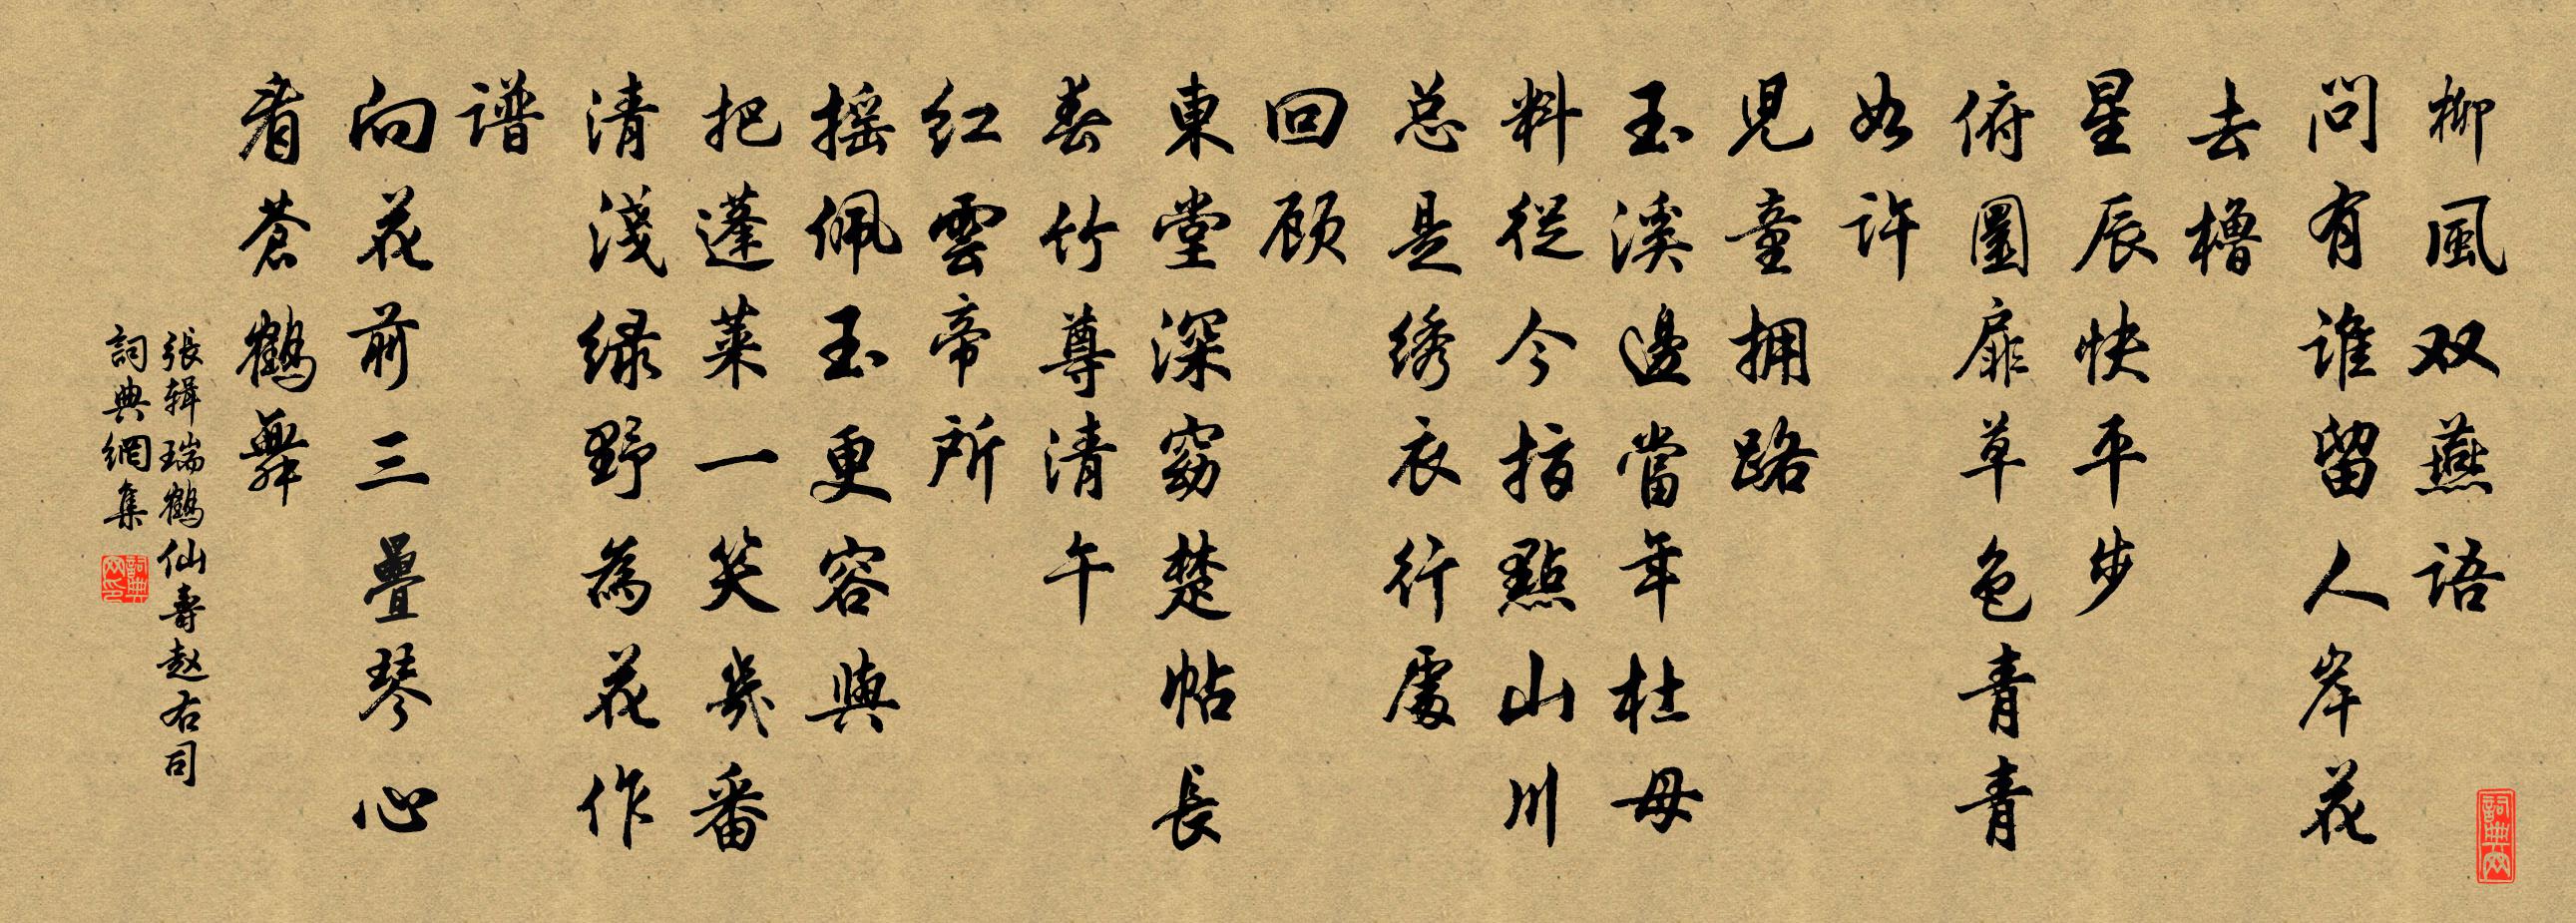 柳風双燕語
問有谁留人岸花
去櫓
星辰快平步
俯圜扉草色青青
如许
児童拥路
玉溪邊當年杜母
料從今指點山川
总是绣衣行處
回顾
東堂深窈楚帖長
春竹尊清午
红雲帝所
摇佩玉更容與
把蓬莱一笑幾番
清淺绿野為花作
谱
向花前三疊琴心
看蒼鶴舞
張辑瑞鶴仙寿赵右司
詞典網集
詞典网印
詞典网